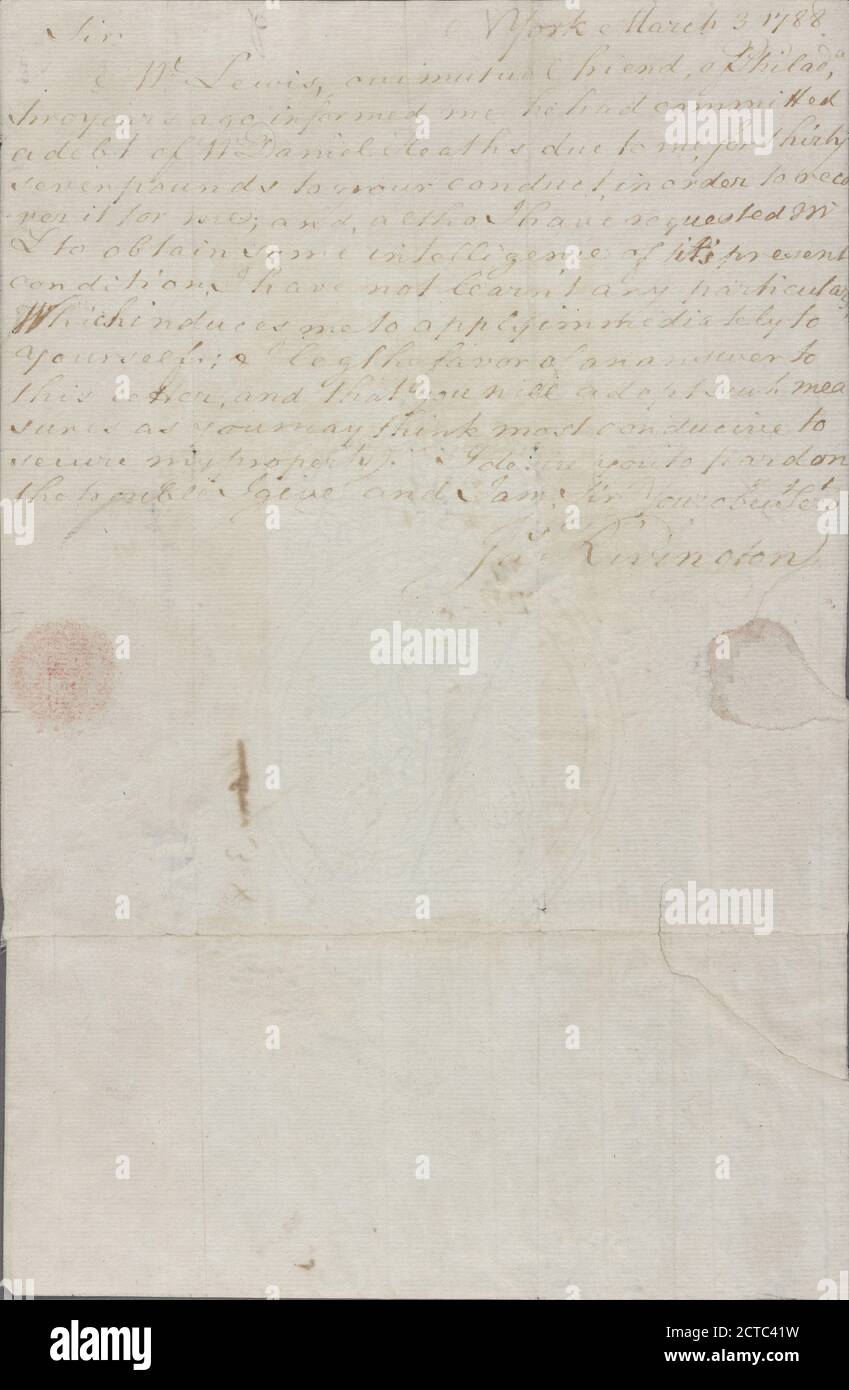 N York March 3 1788.
Sir
Mr Lewis, our mutual friend, of Philada,
two years ago informed me he had committed
a debt of Mr Daniel Heaths due to me, for thirty
seven pounds to your conduct, in order to reco
ver it for me; and, altho I have requested Mr
L to obtain some intelligence of it's present
condition, I have not learn't any particulars,
Which induces me to apply immediately to
yourself; & I beg the favor of an answer to
this letter, and that you will adopt such mea
sures as you may think most conducive to
secure my property. I desire you to pardon
the trouble I give and I am, Sir Your obedt Sert
Jas Rivington
alamy
alamy
alamy
a
a
a
a
alamy
Image ID: 2CTC41W
www.alamy.com